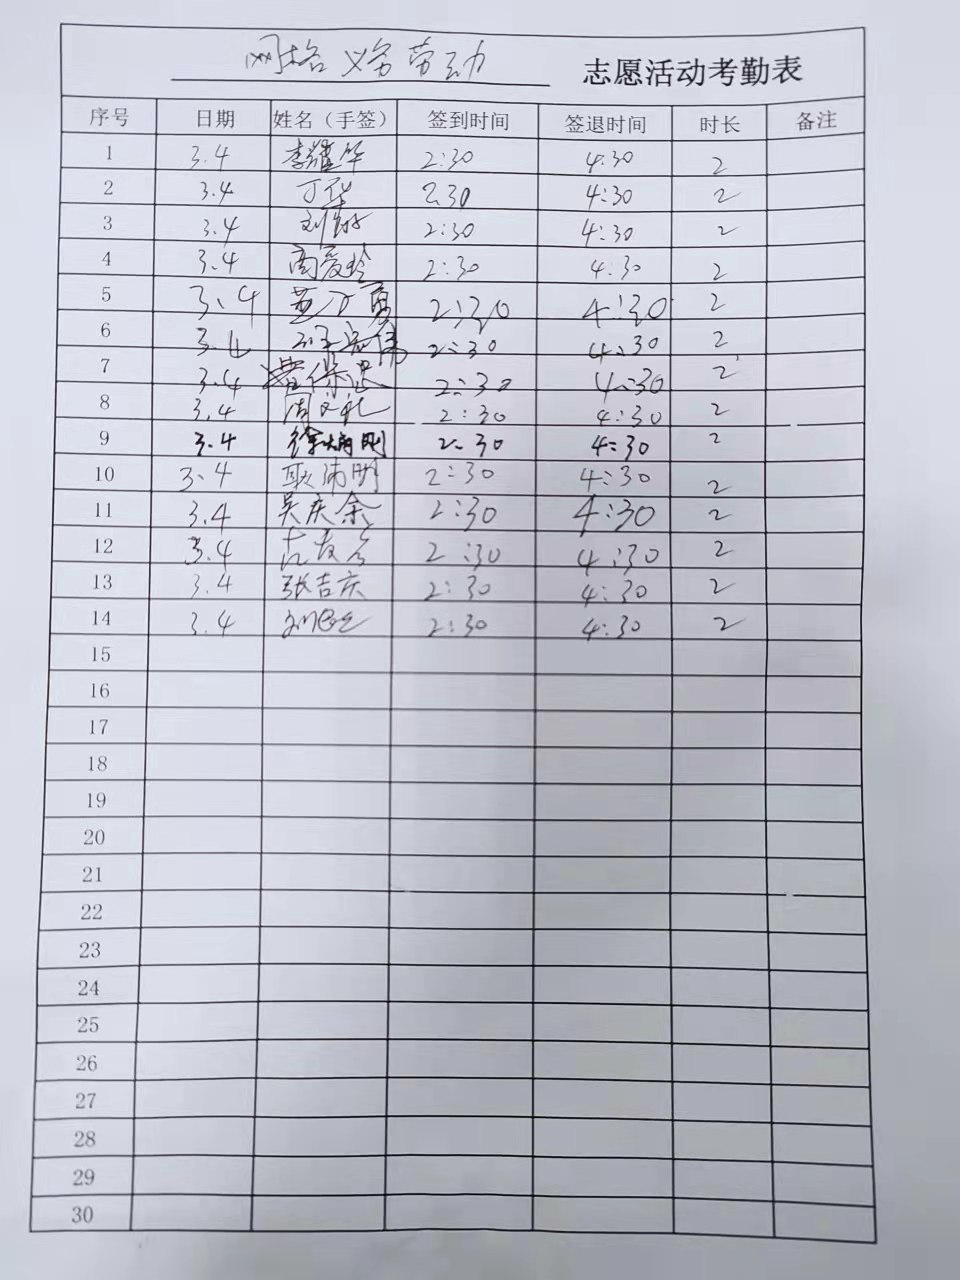 网格义务劳动 志愿活动考勤表
序号 日期 姓名（手签） 签到时间 签退时间 时长 备注
1 3.4 李耀华 2:30 4:30 2
2 3.4 丁华 2:30 4:30 2
3 3.4 刘 2:30 4:30 2
4 3.4 高爱玲 2:30 4:30 2
5 3.4 2:30 4:30 2
6 3.4 2:30 4:30 2
7 3.4 保忠 2:30 4:30 2
8 3.4 周文礼 2:30 4:30 2
9 3.4 徐炳刚 2:30 4:30 2
10 3.4 耿沛明 2:30 4:30 2
11 3.4 吴庆余 2:30 4:30 2
12 3.4 范 2:30 4:30 2
13 3.4 张吉庆 2:30 4:30 2
14 3.4 刘 2:30 4:30 2
15
16
17
18
19
20
21
22
23
24
25
26
27
28
29
30